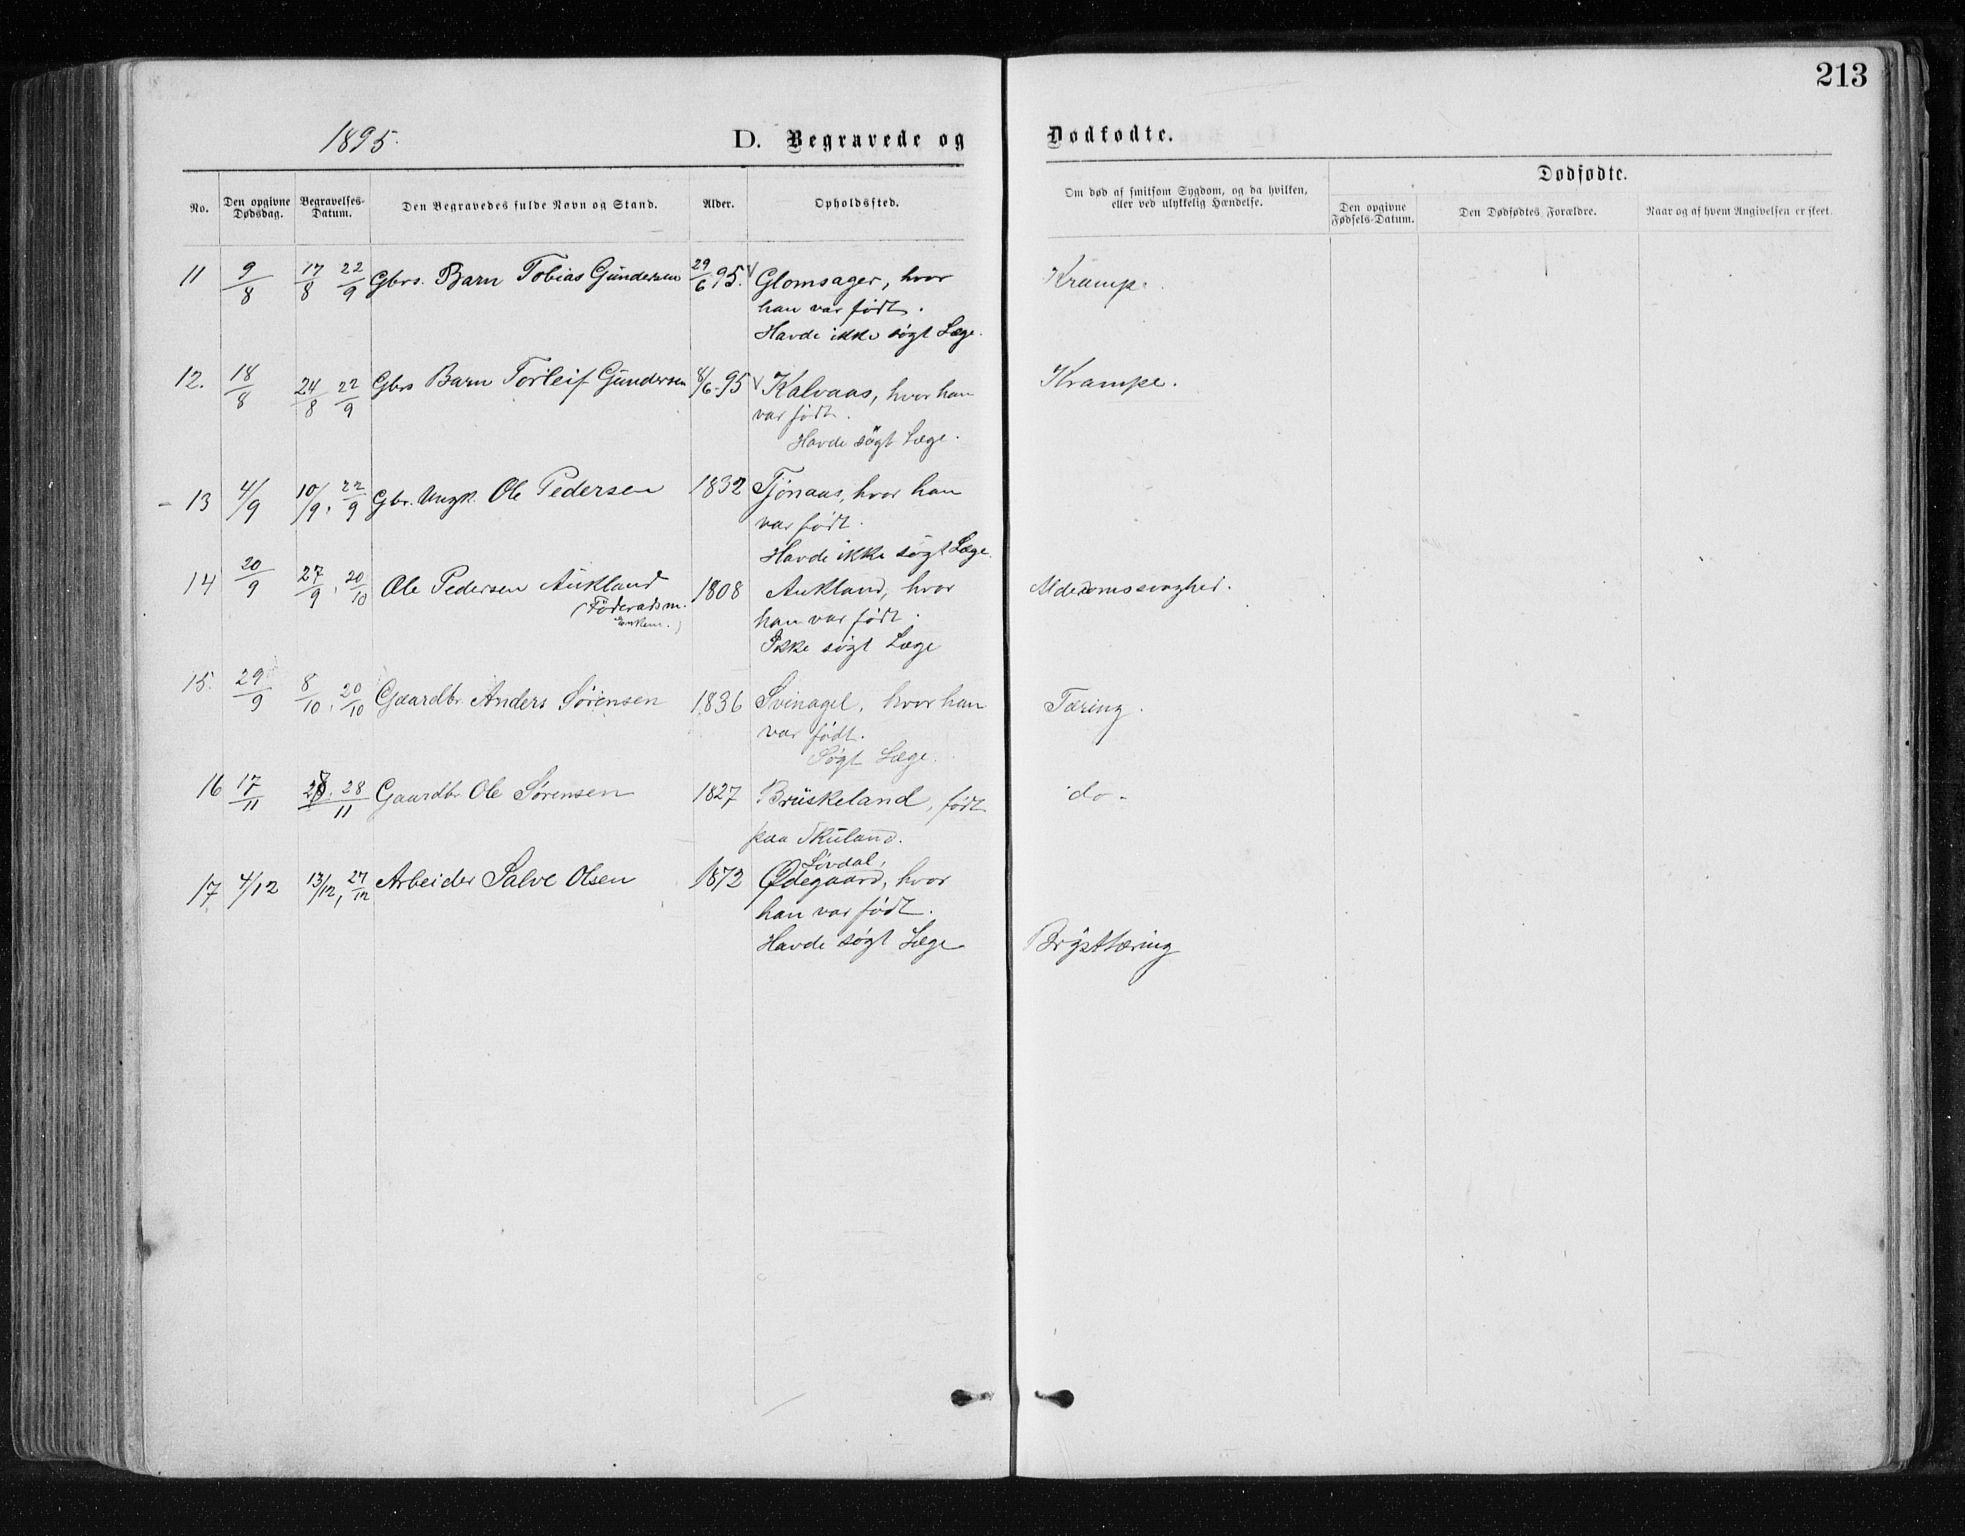 213
1895.
D. Begravede og Dødfødte.
No.
Den opgivne Dødsdag.
Begravelses-Datum.
Den Begravedes fulde Navn og Stand.
Alder.
Opholdssted.
Om død af smitsom Sygdom, og da hvilken,
eller ved ulykkelig Hændelse.
Dødfødte.
Den opgivne Fødsels-Datum.
Den Dødfødtes Forældre.
Naar og af hvem Angivelsen er skeet.
11 9/8 17/8 22/9 Gbrs. Barn Tobias Gundersen 29/6 95. Glomsager, hvor Krampe.
han var født.
Havde ikke søgt Læge.
12. 18/8 24/8 22/9 Gbrs Barn Torleif Gundersen 8/6-95 Kalvaas, hvor han Krampe.
var født.
Havde søgt Læge.
13 4/9 10/9, 22/9 Gbr. Ungk. Ole Pedersen 1832 Tjönaas, hvor han
var født.
Havde ikke søgt Læge.
14 20/9 27/9. 20/10 Ole Pedersen Aukland 1808 Aukland, hvor Alderdomssvaghed.
(Föderadsm.
Enkem.)
han var født.
Ikke søgt Læge
15. 29/9 8/10. 20/10 Gaardbr. Anders Sørensen 1836 Svinagel, hvor han Tæring.
var født.
Søgt Læge.
16 17/11 28/11 Gaardbr Ole Sørensen 1827 Bruskeland, født do-
paa Skuland.
17 4/12 13/12, 27/12 Arbeider Salve Olsen 1872 Ødegaard, hvor
Lövdal,
han var født.
Havde søgt Læge Brysttæring